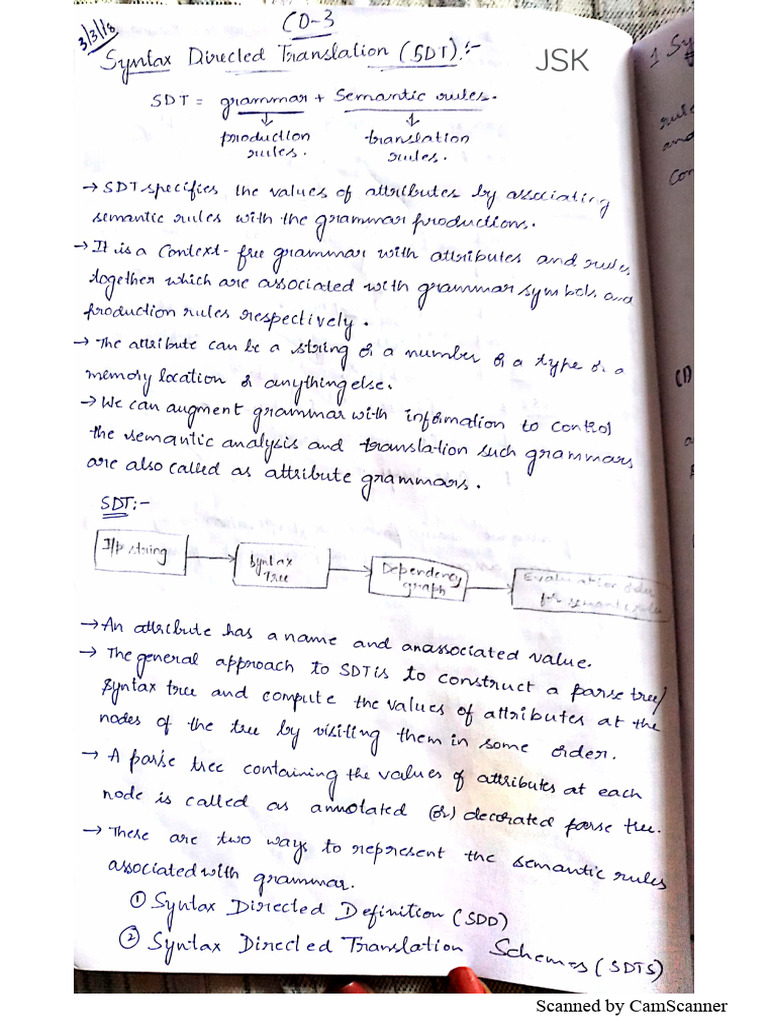 3/3/18
CD-3
Syntax Directed Translation (SDT):-
JSK
SDT = grammar + Semantic rules.
production rules.
translation rules.
→ SDT specifies the values of attributes by associating
semantic rules with the grammar productions.
→ It is a Context-free grammar with attributes and rules
together which are associated with grammar symbols and
production rules respectively.
→ The attribute can be a string or a number or a type or a
memory location or anything else.
→ We can augment grammar with information to control
the semantic analysis and translation such grammars
are also called as attribute grammars.
SDT:-
I/p string
Syntax Tree
Dependency graph
Evaluation order for semantic rules
→ An attribute has a name and an associated value.
→ The general approach to SDT is to construct a parse tree/
syntax tree and compute the values of attributes at the
nodes of the tree by visiting them in some order.
→ A parse tree containing the values of attributes at each
node is called as annotated (or) decorated parse tree.
→ These are two ways to represent the semantic rules
associated with grammar.
① Syntax Directed Definition (SDD)
② Syntax Directed Translation Schemes (SDTS)
1 Sy
rule
and
con
Scanned by CamScanner